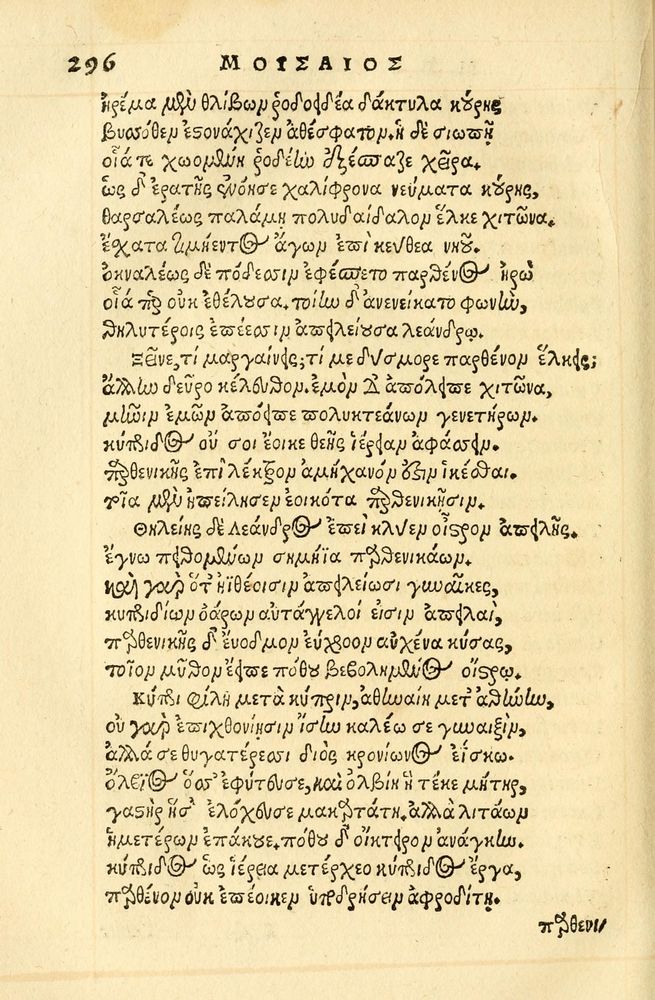 296 ΜΟΥΣΑΙΟΣ
ἠρέμα μὲν θλίβων ῥοδοειδέα δάκτυλα κούρης
βυσσόθεν ἐστονάχιζεν ἀθέσφατον. ἡ δὲ σιωπῇ
οἷά τε χωομένη ῥοδέην ἐξέσπασε χεῖρα.
ὡς δ' ἐρατῆς ἐνόησε χαλίφρονα νεύματα κούρης,
θαρσαλέως παλάμῃ πολυδαίδαλον ἕλκε χιτῶνα.
ἔσχατα τιμήεντος ἄγων ἐπὶ κεύθεα νηοῦ.
ὀκναλέως δὲ πόδεσσιν ἐφέσπετο παρθένος ἡρὼ
οἷά περ οὐκ ἐθέλουσα. τοίην δ' ἀνενείκατο φωνὴν,
θηλυτέροις ἐπέεσσιν ἀπειλείουσα λεάνδρῳ.
Ξεῖνε, τί μαργαίνεις; τί με δύσμορε παρθένον ἕλκεις;
ἄλλην δεῦρο κέλευθον. ἐμὸν δ' ἀπόλειπε χιτῶνα,
μῆνιν ἐμῶν ἀπόειπε πολυκτεάνων γενετήρων.
κύπριδος οὔ σοι ἔοικε θεῆς ἱέρειαν ἀφάσσειν.
παρθενικῆς ἐπὶ λέκτρον ἀμήχανόν ἐστιν ἱκέσθαι.
τοῖα μὲν ἠπείλησεν ἐοικότα παρθενικῇσιν.
Θηλείης δὲ Λέανδρος ἐπεὶ κλύεν οἶστρον ἀπειλῆς.
ἔγνω πειθομένων σημήϊα παρθενικάων.
καὶ γὰρ ὅτ' ἠϊθέοισιν ἀπειλείωσι γυναῖκες,
κυπριδίων ὀάρων αὐτάγγελοί εἰσιν ἀπειλαὶ,
παρθενικῆς δ' ἔνοδμον εὔχροον αὐχένα κύσας,
τοῖον μῦθον ἔειπε πόθου βεβολημένος οἴστρῳ.
Κύπρι φίλη μετὰ κύπριν, ἀθηναίη μετ' ἀθήνην,
οὐ γὰρ ἐπιχθονίῃσιν ἴσην καλέω σε γυναιξὶν,
ἀλλά σε θυγατέρεσσι διὸς κρονίωνος ἐίσκω.
ὄλβιος ὅς σ' ἐφύτευσε, καὶ ὀλβίη ἣ τέκε μήτηρ,
γαστὴρ ἥ σ' ἐλόχευσε μακαρτάτη. ἀλλὰ λιτάων
ἡμετέρων ἐπάκουε. πόθου δ' οἴκτειρον ἀνάγκην.
κύπριδος ὡς ἱέρεια μετέρχεο κύπριδος ἔργα,
παρθένον οὐκ ἐπέοικεν ὑποδρήσσειν ἀφροδίτῃ.
παρθενι//